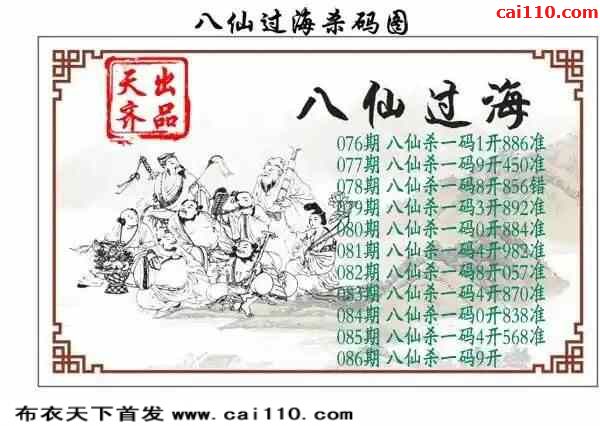 八仙过海杀码图
cai110.com
天齐出品
八仙过海
076期 八仙杀一码1开886准
077期 八仙杀一码9开450准
078期 八仙杀一码8开856错
079期 八仙杀一码3开892准
080期 八仙杀一码0开884准
081期 八仙杀一码4开982准
082期 八仙杀一码8开057准
083期 八仙杀一码4开870准
084期 八仙杀一码0开838准
085期 八仙杀一码4开568准
086期 八仙杀一码9开
布衣天下首发 www.cai110.com